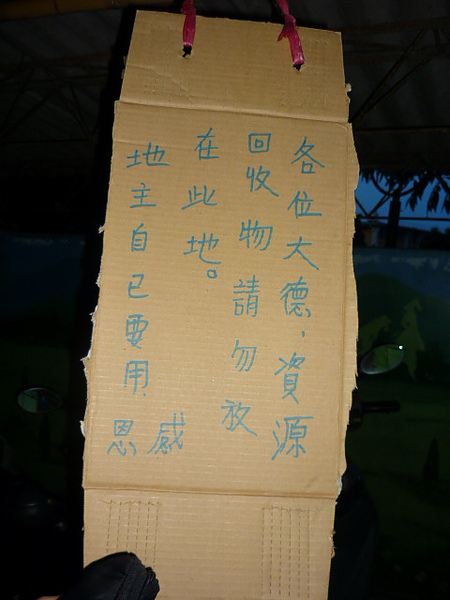 各位大德，資源
回收物請勿放
在此地。
地主自己要用
感恩